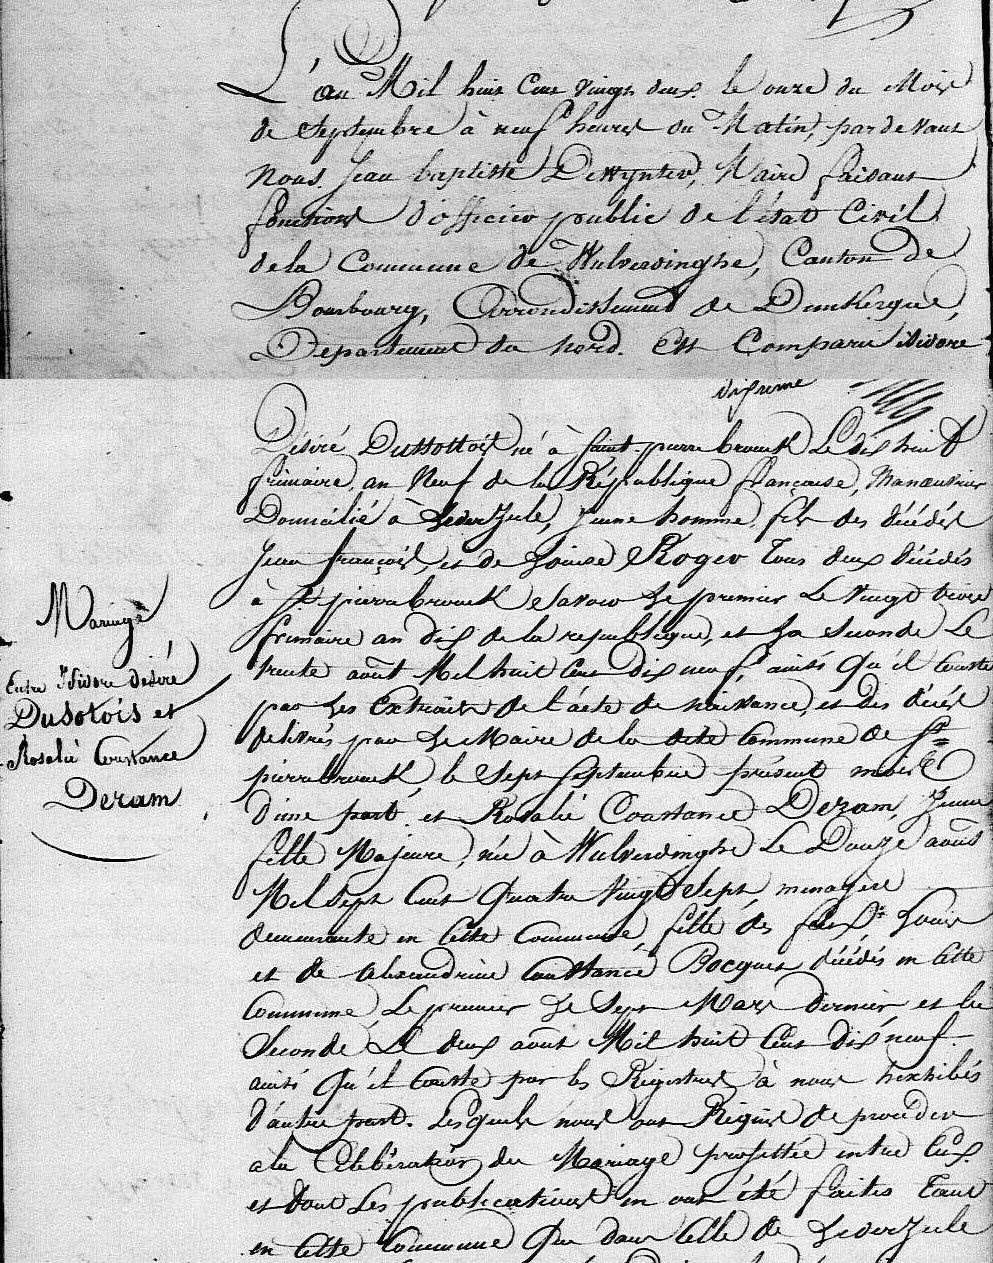 L'an Mil huit Cent vingt deux le onze du Mois
de Septembre à neuf heures du Matin, pardevant
Nous Jean baptiste Dewynter, Maire faisant
fonctions d'officier public de l'état Civil
de la Commune de Wulverdinghe, Canton de
Bourbourg, Arrondissement de Dunkerque,
Departement du nord. Est Comparu isidore
Désiré Dussottois né à Saint-pierrebrouck Le dix huit
frimaire, an Neuf de la République française, Manœuvrier
Domicilié à Lederzeele, jeune homme, fils des décédés
Jean françois, et de Louise Roger tous deux décédés
à St pierrebrouck Savoir Le premier Le vingt trois
frimaire an dix de la republique, et La Seconde Le
trente août Mil huit Cent dix neuf, ainsi Qu'il Conste
par Les Extraits de l'acte de naissance, et des décès
délivrés par Le Maire de la dite Commune de St
pierrebrouck, le Sept Septembre présent mois
D'une part. et Rosalie Constance Deram, Jeune
fille Majeure, née à Wulverdinghe Le Douze août
Mil Sept Cent Quatre Vingt Sept, menagère
demeurante en Cette Commune, fille des feux Louis
et de Alexandrine Constance Bocquet décédés en Cette
Commune, Le premier Le Sept Mars dernier, et la
Seconde Le deux août Mil huit Cent dix neuf.
ainsi Qu'il Conste par les Régistres à nous hexhibés
D'autre part. Lesquels nous ont Réquis de procéder
a la Célébration du Mariage projettée entre Eux
et dont Les publications en ont été faites Tant
en Cette Commune Que dans Celle de Lederzeele
Mariage
Entre Isidore desiré
Dusotois et
Rosalie Constance
Deram